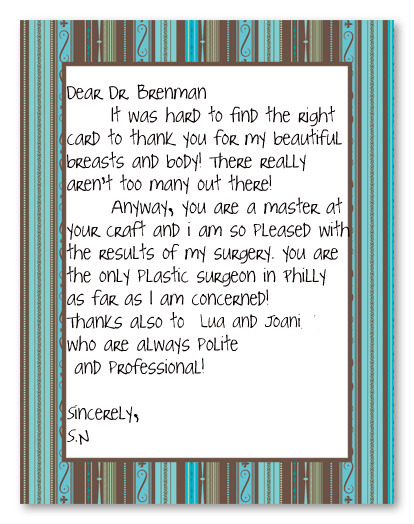 Dear Dr. Brenman
It was hard to find the right
card to thank you for my beautiful
breasts and body! There really
aren't too many out there!
Anyway, you are a master at
your craft and i am so pleased with
the results of my surgery. you are
the only plastic surgeon in Philly
as far as I am concerned!
Thanks also to Lua and Joani
who are always polite
and professional!
Sincerely,
S.N